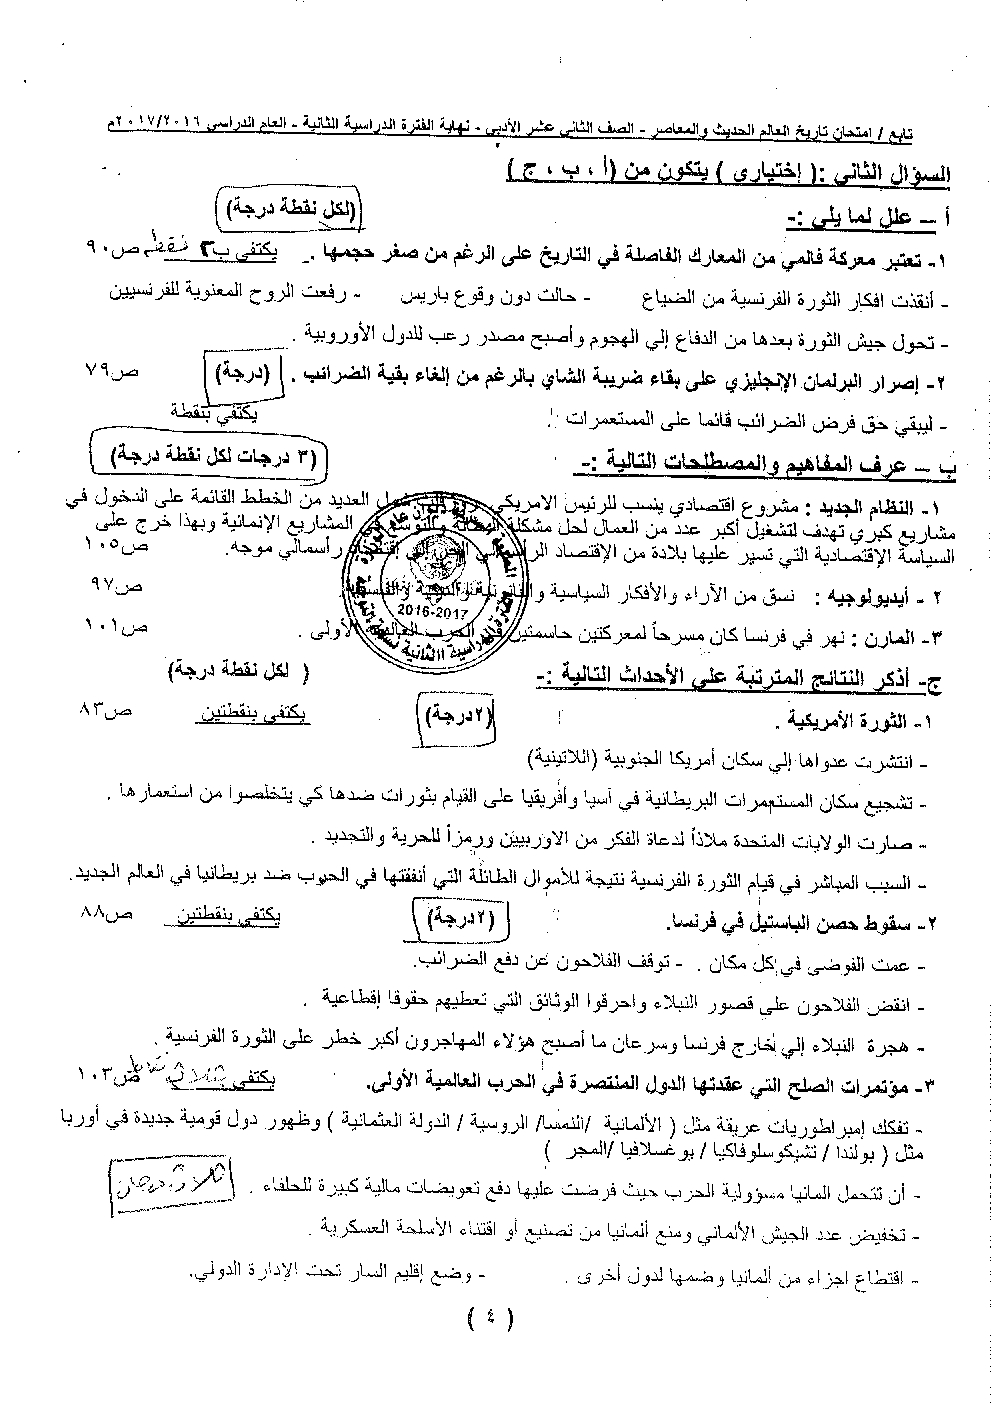 تابع / امتحان تاريخ العالم الحديث والمعاصر – الصف الثاني عشر الأدبي – نهاية الفترة الدراسية الثانية – العام الدراسي ٢٠١٧/٢٠١٦م
السؤال الثاني :( إختياري ) يتكون من (أ ، ب ، ج )
أ – علل لما يلي :-
(لكل نقطة درجة)
١- تعتبر معركة فالمي من المعارك الفاصلة في التاريخ على الرغم من صغر حجمها . يكتفى ب٣ نقط ص٩٠
- أنقذت افكار الثورة الفرنسية من الضياع - حالت دون وقوع باريس - رفعت الروح المعنوية للفرنسيين
- تحول جيش الثورة بعدها من الدفاع إلي الهجوم وأصبح مصدر رعب للدول الأوروبية .
٢- إصرار البرلمان الإنجليزي على بقاء ضريبة الشاي بالرغم من إلغاء بقية الضرائب . (درجة) ص٧٩
- ليبقي حق فرض الضرائب قائما على المستعمرات . يكتفي بنقطة
ب – عرف المفاهيم والمصطلحات التالية :- (٣ درجات لكل نقطة درجة)
١- النظام الجديد : مشروع اقتصادي ينسب للرئيس الامريكي العديد من الخطط القائمة على الدخول في
مشاريع كبري تهدف لتشغيل أكبر عدد من العمال لحل مشكلة البطالة والتوسع في المشاريع الإنمائية وبهذا خرج على
السياسة الإقتصادية التي تسير عليها بلادة من الإقتصاد الرأسمالي الحر إلي إقتصاد رأسمالي موجه. ص١٠٥
٢ - أيديولوجيه : نسق من الآراء والأفكار السياسية والقانونية ص٩٧
٣- المارن : نهر في فرنسا كان مسرحاً لمعركتين حاسمتين في الحرب العالمية الأولى . ص١٠١
2016-2017
ج- أذكر النتائج المترتبة على الأحداث التالية :- ( لكل نقطة درجة)
١- الثورة الأمريكية . (٢درجة) يكتفى بنقطتين ص٨٣
- انتشرت عدواها إلي سكان أمريكا الجنوبية (اللاتينية)
- تشجيع سكان المستعمرات البريطانية في آسيا وأفريقيا على القيام بثورات ضدها كي يتخلصوا من استعمارها .
- صارت الولايات المتحدة ملاذاً لدعاة الفكر من الاوربيين ورمزاً للحرية والتجديد .
- السبب المباشر في قيام الثورة الفرنسية نتيجة للأموال الطائلة التي أنفقتها في الحرب ضد بريطانيا في العالم الجديد.
٢- سقوط حصن الباستيل في فرنسا. (٢درجة) يكتفي بنقطتين ص٨٨
- عمت الفوضى في كل مكان . - توقف الفلاحون عن دفع الضرائب.
- انقض الفلاحون على قصور النبلاء واحرقوا الوثائق التي تعطيهم حقوقا إقطاعية .
- هجرة النبلاء إلي خارج فرنسا وسرعان ما أصبح هؤلاء المهاجرون أكبر خطر على الثورة الفرنسية .
٣- مؤتمرات الصلح التي عقدتها الدول المنتصرة في الحرب العالمية الأولى. يكتفى بثلاث نقاط ص١٠٣
- تفكك إمبراطوريات عريقة مثل ( الألمانية /النمسا/ الروسية / الدولة العثمانية ) وظهور دول قومية جديدة في أوربا
مثل ( بولندا / تشيكوسلوفاكيا / يوغسلافيا /المجر )
- أن تتحمل المانيا مسؤولية الحرب حيث فرضت عليها دفع تعويضات مالية كبيرة للحلفاء . ثلاث درجات
- تخفيض عدد الجيش الألماني ومنع ألمانيا من تصنيع أو اقتناء الأسلحة العسكرية .
- اقتطاع اجزاء من ألمانيا وضمها لدول أخرى . - وضع إقليم السار تحت الإدارة الدولي.
( ٤ )